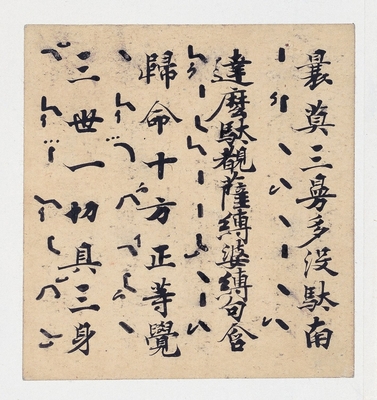 曩莫三曼多没馱南
達麼馱覩薩縛婆縛句含
歸命十方正等覺
三世一切具三身